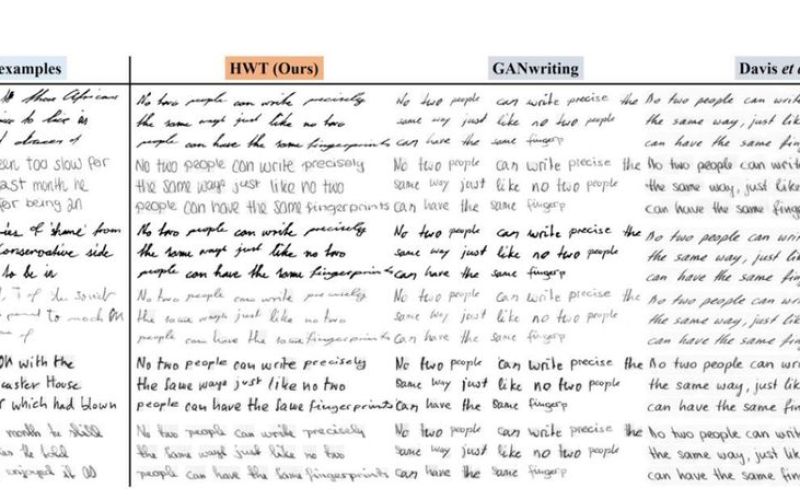 examples
these African
to live in
of
een too slow for
ast month he
for being an
ies of 'shame' from
Conservative side
to be in
of the soviet
to much on
of
on with the
caster House
r which had blown
month
the
enjoyed it as
HWT (Ours)
No two people can write precisely
the same ways just like no two
people can have the same fingerprints
No two people can write precisely
the same ways just like no two
people can have the same fingerprints
No two people can write precisely
the same ways just like no two
people can have the same fingerprints
No two people can write precisely
the same ways just like no two
people can have the same fingerprints
No two people can write precisely
the same ways just like no two
people can have the same fingerprints
No two people can write precisely
the same ways just like no two
people can have the same fingerprints
GANwriting
No two people can write precise the
same way just like no two people
can have the same fingerp
No two people can write precise the
same way just like no two people
can have the same fingerp
No two people can write precise the
same way just like no two people
can have the same fingerp
No two people can write precise the
same way just like no two people
can have the same fingerp
No two people can write precise the
same way just like no two people
can have the same fingerp
No two people can write precise the
same way just like no two people
can have the same fingerp
Davis et a
No two people can writ
the same way, just lik
can have the same fing
No two people can writ
the same way, just like
can have the same fing
No two people can wri
the same way, just li
can have the same fin
No two people can wr
the same way, just li
can have the same fin
No two people can wri
the same way, just lik
can have the same fin
No two people can wri
the same way, just lik
can have the same fin